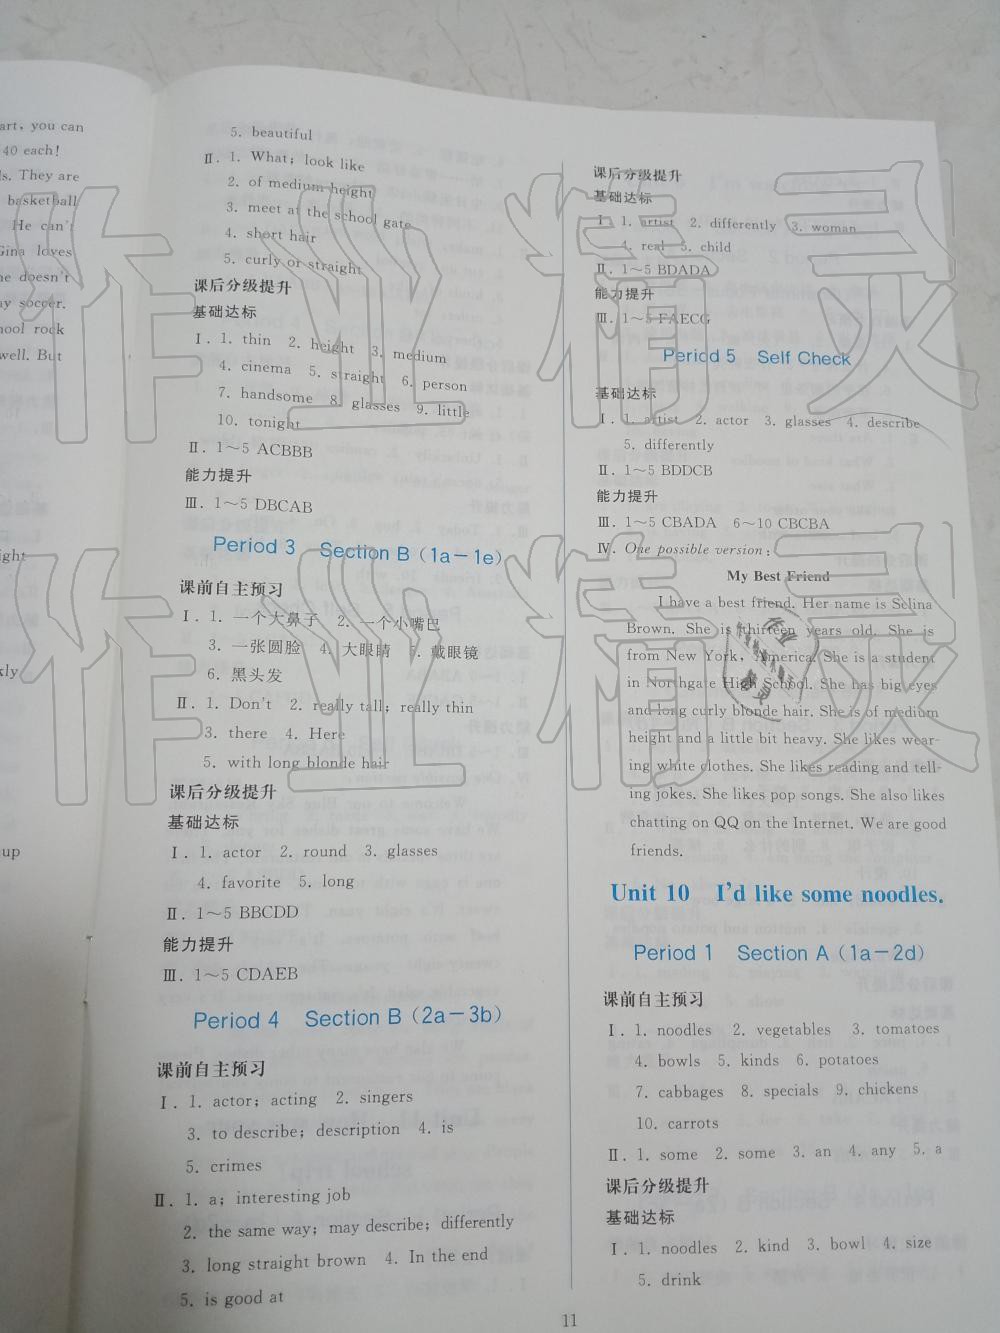 art, you can
40 each!
ls. They are
basketball
He can't
Gina loves
he doesn't
ay soccer.
hool rock
well. But
ight
kly
up
5. beautiful
Ⅱ. 1. What; look like
2. of medium height
3. meet at the school gate
4. short hair
5. curly or straight
课后分级提升
基础达标
Ⅰ. 1. thin 2. height 3. medium
4. cinema 5. straight 6. person
7. handsome 8. glasses 9. little
10. tonight
Ⅱ. 1～5 ACBBB
能力提升
Ⅲ. 1～5 DBCAB
Period 3 Section B (1a－1e)
课前自主预习
Ⅰ. 1. 一个大鼻子 2. 一个小嘴巴
3. 一张圆脸 4. 大眼睛 5. 戴眼镜
6. 黑头发
Ⅱ. 1. Don't 2. really tall; really thin
3. there 4. Here
5. with long blonde hair
课后分级提升
基础达标
Ⅰ. 1. actor 2. round 3. glasses
4. favorite 5. long
Ⅱ. 1～5 BBCDD
能力提升
Ⅲ. 1～5 CDAEB
Period 4 Section B (2a－3b)
课前自主预习
Ⅰ. 1. actor; acting 2. singers
3. to describe; description 4. is
5. crimes
Ⅱ. 1. a; interesting job
2. the same way; may describe; differently
3. long straight brown 4. In the end
5. is good at
课后分级提升
基础达标
Ⅰ 1. artist 2. differently 3. woman
4. real 5. child
Ⅱ. 1～5 BDADA
能力提升
Ⅲ. 1～5 FAECG
Period 5 Self Check
基础达标
Ⅰ. 1. artist 2. actor 3. glasses 4. describe
5. differently
Ⅱ. 1～5 BDDCB
能力提升
Ⅲ. 1～5 CBADA 6～10 CBCBA
Ⅳ. One possible version:
My Best Friend
I have a best friend. Her name is Selina
Brown. She is thirteen years old. She is
from New York, America. She is a student
in Northgate High School. She has big eyes
and long curly blonde hair. She is of medium
height and a little bit heavy. She likes wear-
ing white clothes. She likes reading and tell-
ing jokes. She likes pop songs. She also likes
chatting on QQ on the Internet. We are good
friends.
Unit 10 I'd like some noodles.
Period 1 Section A (1a－2d)
课前自主预习
Ⅰ. 1. noodles 2. vegetables 3. tomatoes
4. bowls 5. kinds 6. potatoes
7. cabbages 8. specials 9. chickens
10. carrots
Ⅱ. 1. some 2. some 3. an 4. any 5. a
课后分级提升
基础达标
Ⅰ. 1. noodles 2. kind 3. bowl 4. size
5. drink
11
作业精灵
作业精灵